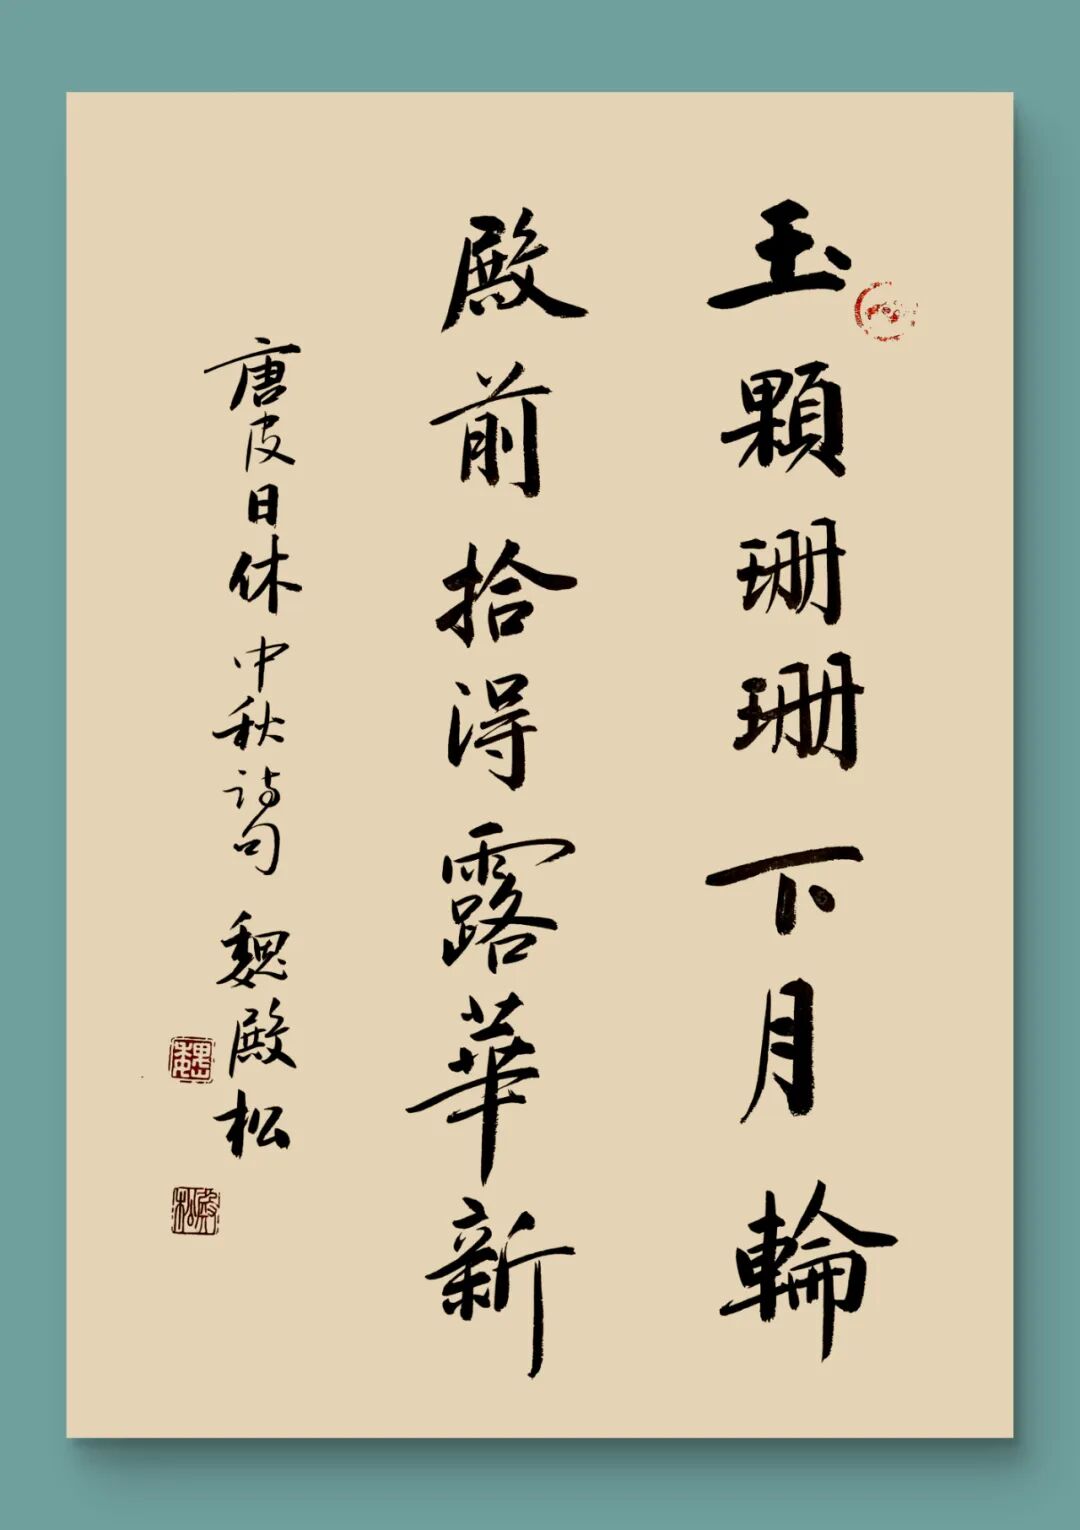 玉顆珊珊下月輪
殿前拾得露華新
唐皮日休中秋诗句 魏殿松
魏
殿松